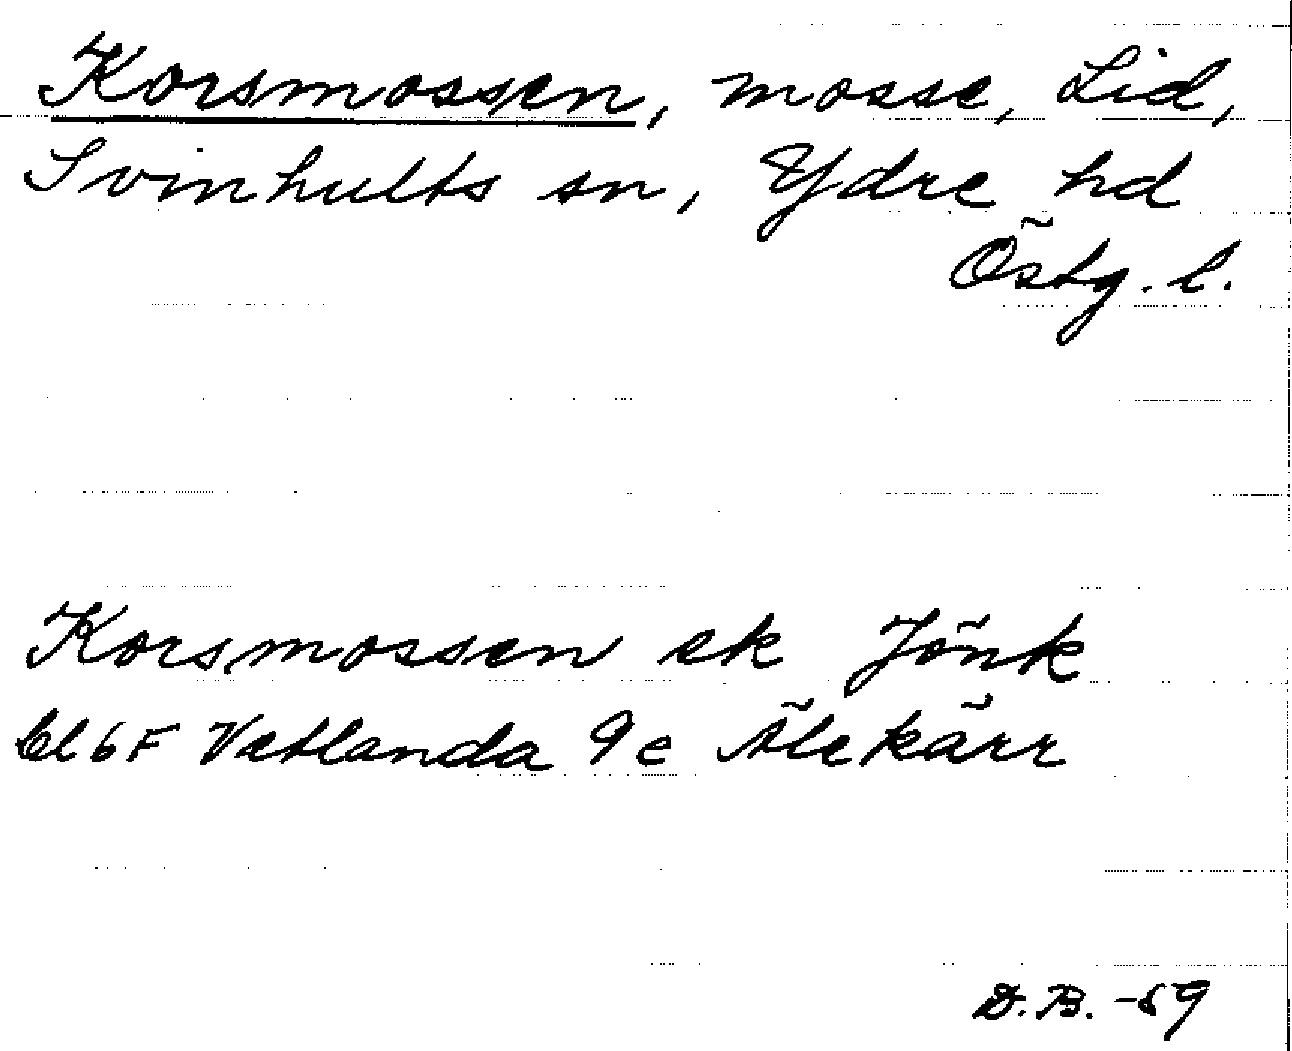 Korsmossen, mosse, Lid,
Svinhults sn, Ydre hd
Östg. l.
Korsmossen ek Jönk
bl 6F Vetlanda 9e Älekärr
D.B. -69